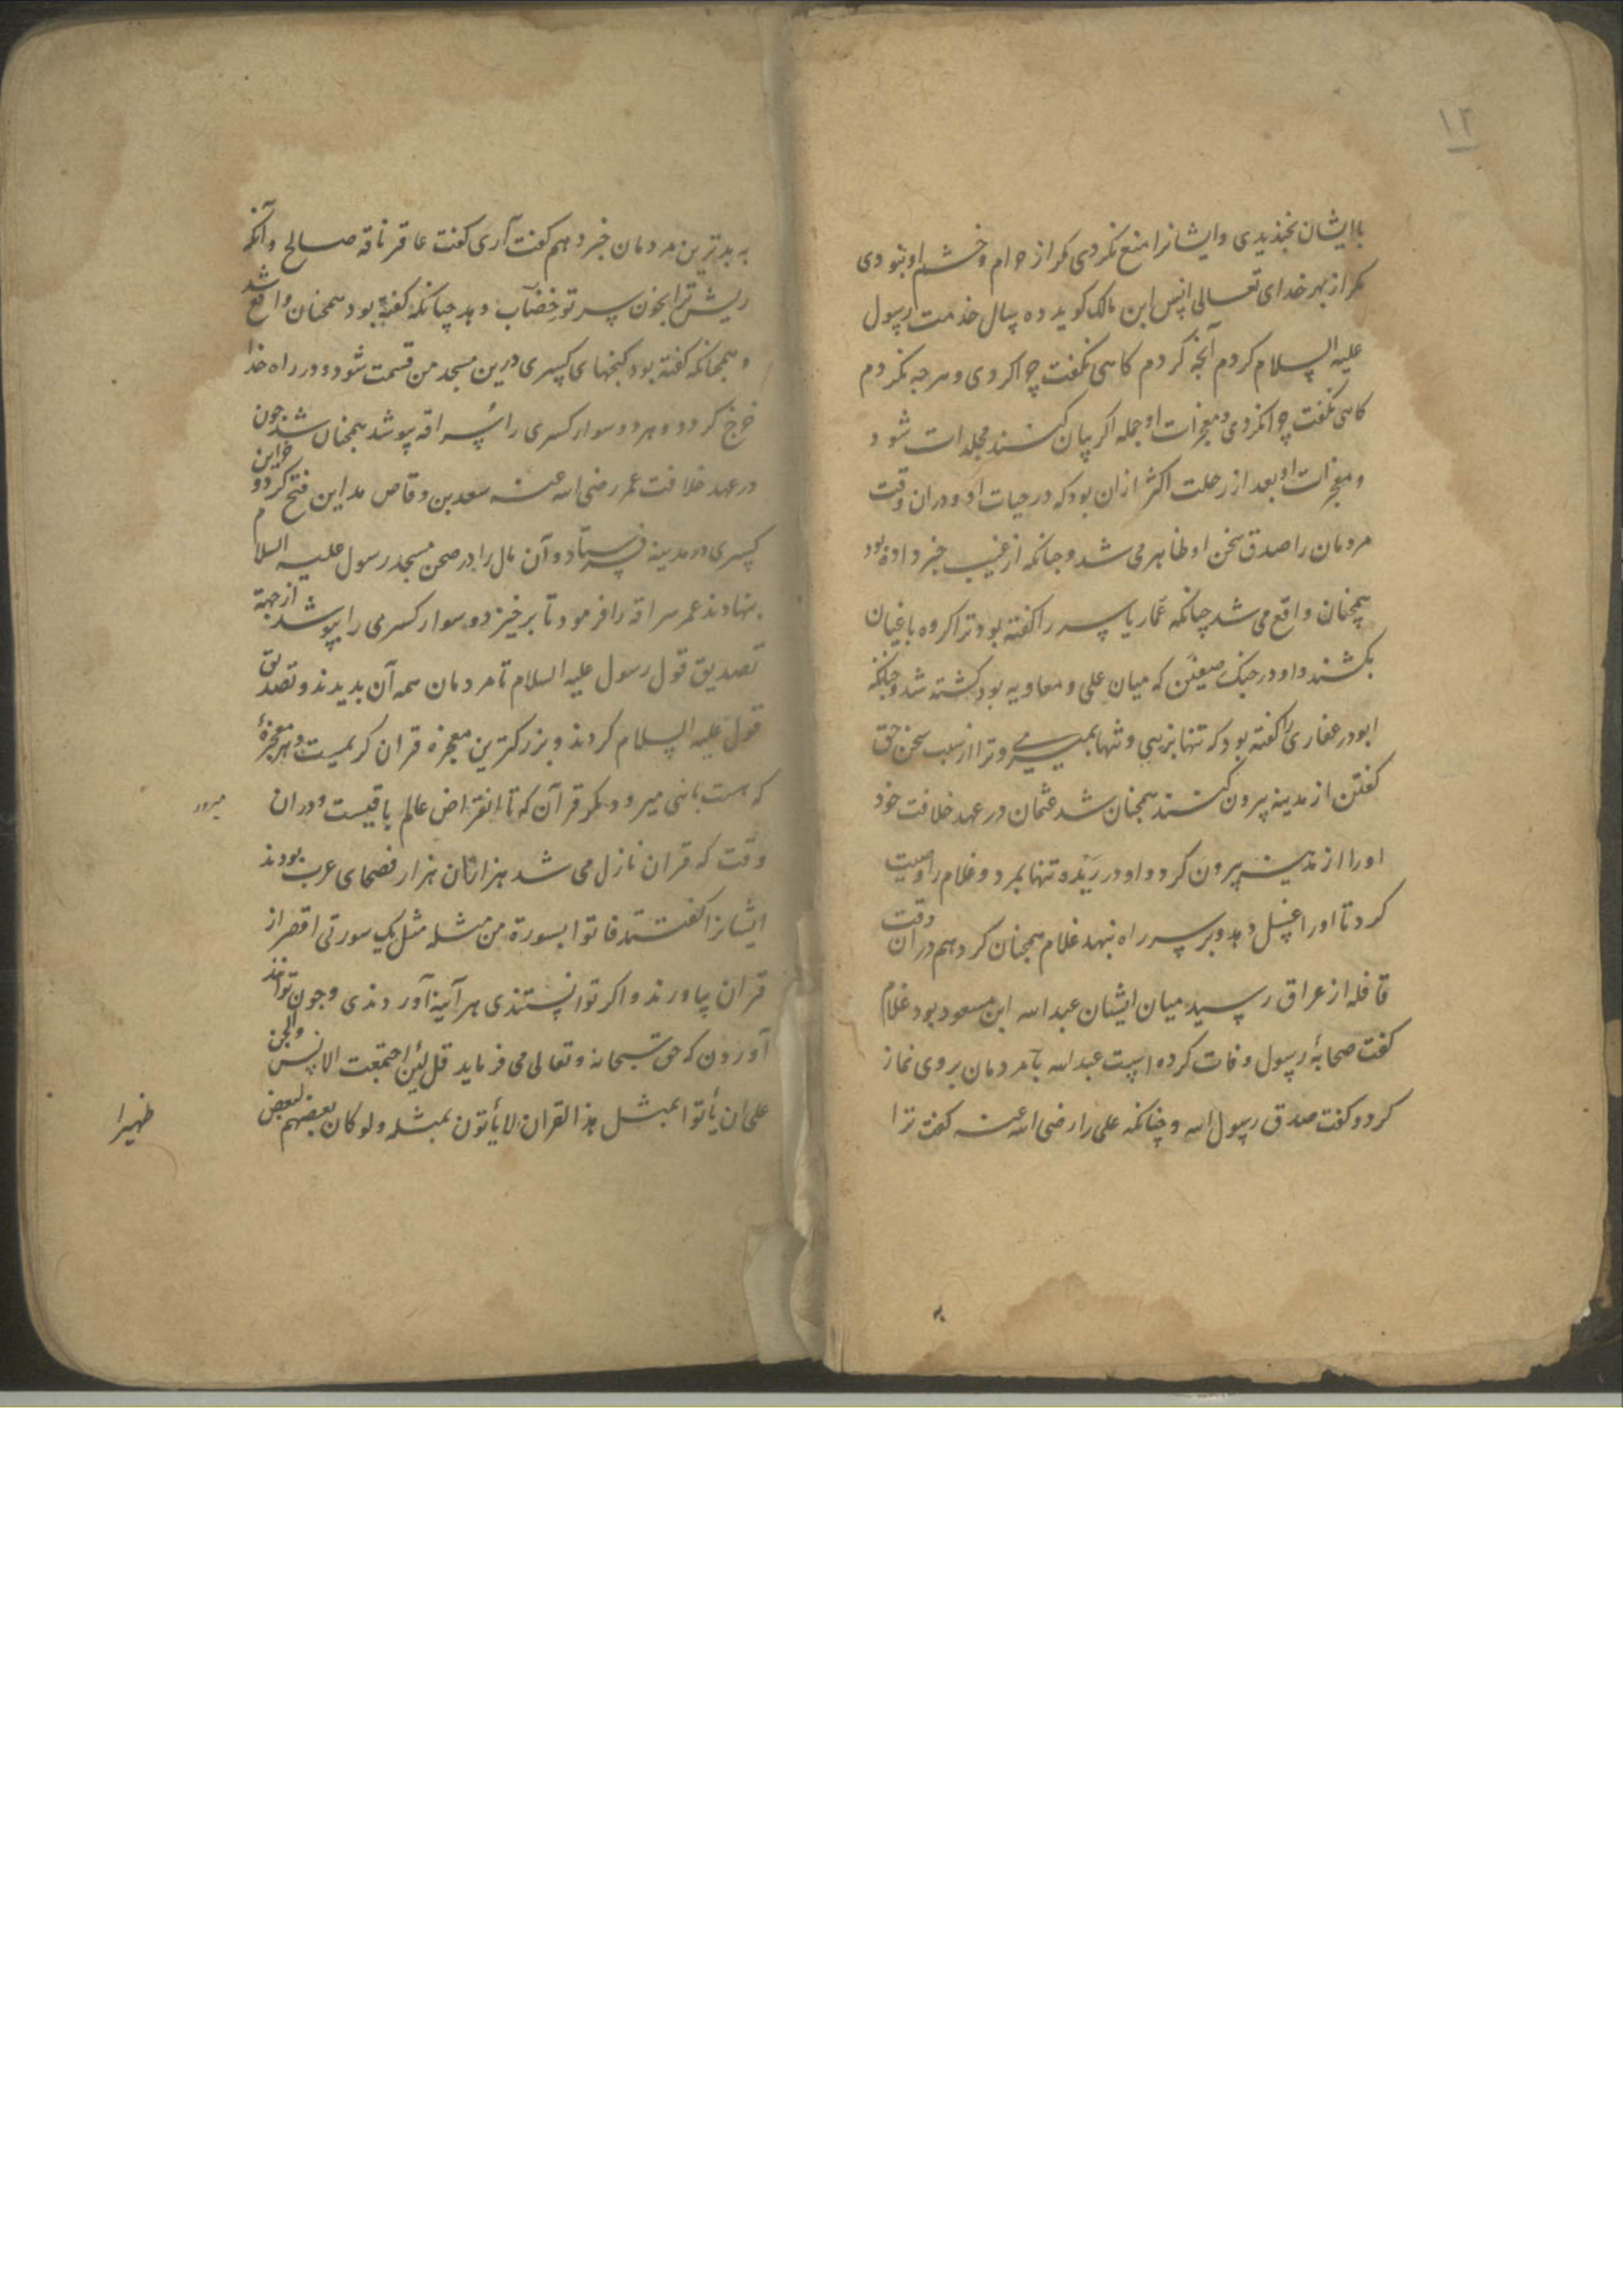 ۱۲
با ایشان بخندیدی و ایشانرا منع نکردی مکر از حرام و خشم او نبودی
مکر از بهر خدای تعالی انس ابن مالک کوید ده سال خدمت رسول
علیه السلام کردم آنچه کردم کاهی نکفت چرا کردی و هرچه نکردم
کاهی نکفت چرا نکردی و معجزات او جمله اکر بیان کنند مجلدات شود
و معجزات او بعد از رحلت اکثر ازان بود که در حیات او و دران وقت
مردمان را صدق سخن او ظاهر می شد و چنانکه از غیب خبر داده بود
همچنان واقع می شد چنانکه عمار یاسر را کفته بود ترا کروه باغیان
بکشند و او در جنک صفین که میان علی و معاویه بود کشته شد و چنانکه
ابوذر غفاری را کفته بود که تنها بزیی و تنها بمیری و ترا از سبب سخن حق
کفتن از مدینه بیرون کنند همچنان شد عثمان در عهد خلافت خود
او را از مدینه بیرون کرد و او در ربذه تنها بمرد و غلام را وصیت
کرد تا او را غسل دهد و بر سر راه نهد غلام همچنان کرد هم دران وقت
قافله از عراق رسید میان ایشان عبد الله ابن مسعود بود غلام
کفت صحابهٔ رسول وفات کرده است عبد الله با مردمان بر وی نماز
کرد و کفت صدق رسول الله و چنانکه علی را رضی الله عنه کفت ترا
به
به بدترین مردمان خبر دهم کفت آری کفت عاقر ناقه صالح و آنکه
ریش ترا بخون سر تو خضاب دهد چنانکه کفته بود همچنان واقع شد
و همچنانکه کفته بود کنجهای کسری درین مسجد من قسمت شود و در راه خدا
خرج کردد و هر دو سوار کسری را سراقه پوشد همچنان شد چون
در عهد خلافت عمر رضی الله عنه سعد بن وقاص مداین فتح کرد و خزاین
کسری در مدینه فرستاد و آن مال را در صحن مسجد رسول علیه السلام
بنهادند عمر سراقه را فرمود تا برخیزد و سوار کسری را بپوشد از جهة
تصدیق قول رسول علیه السلام تا مردمان همه آن بدیدند و تصدیق
قول علیه السلام کردند و بزرکترین معجزه قران کریمست و هر معجزهٔ
که هست باشی میرود مکر قرآن که تا انقراض عالم باقیست و دران
میرود
وقت که قران نازل می شد هزاران هزار فصحای عرب بودند
ایشانرا کفتند فاتوا بسورة من مثله مثل یک سورتی اقصر از
قران بیاورند و اکر توانستندی هر آینه آوردندی و چون توانند
آوردن که حق سبحانه و تعالی می فرماید قل لئن اجتمعت الانس والجن
علی ان یأتوا بمثل هذا القران لا یأتون بمثله ولو کان بعضهم لبعض
ظهیرا